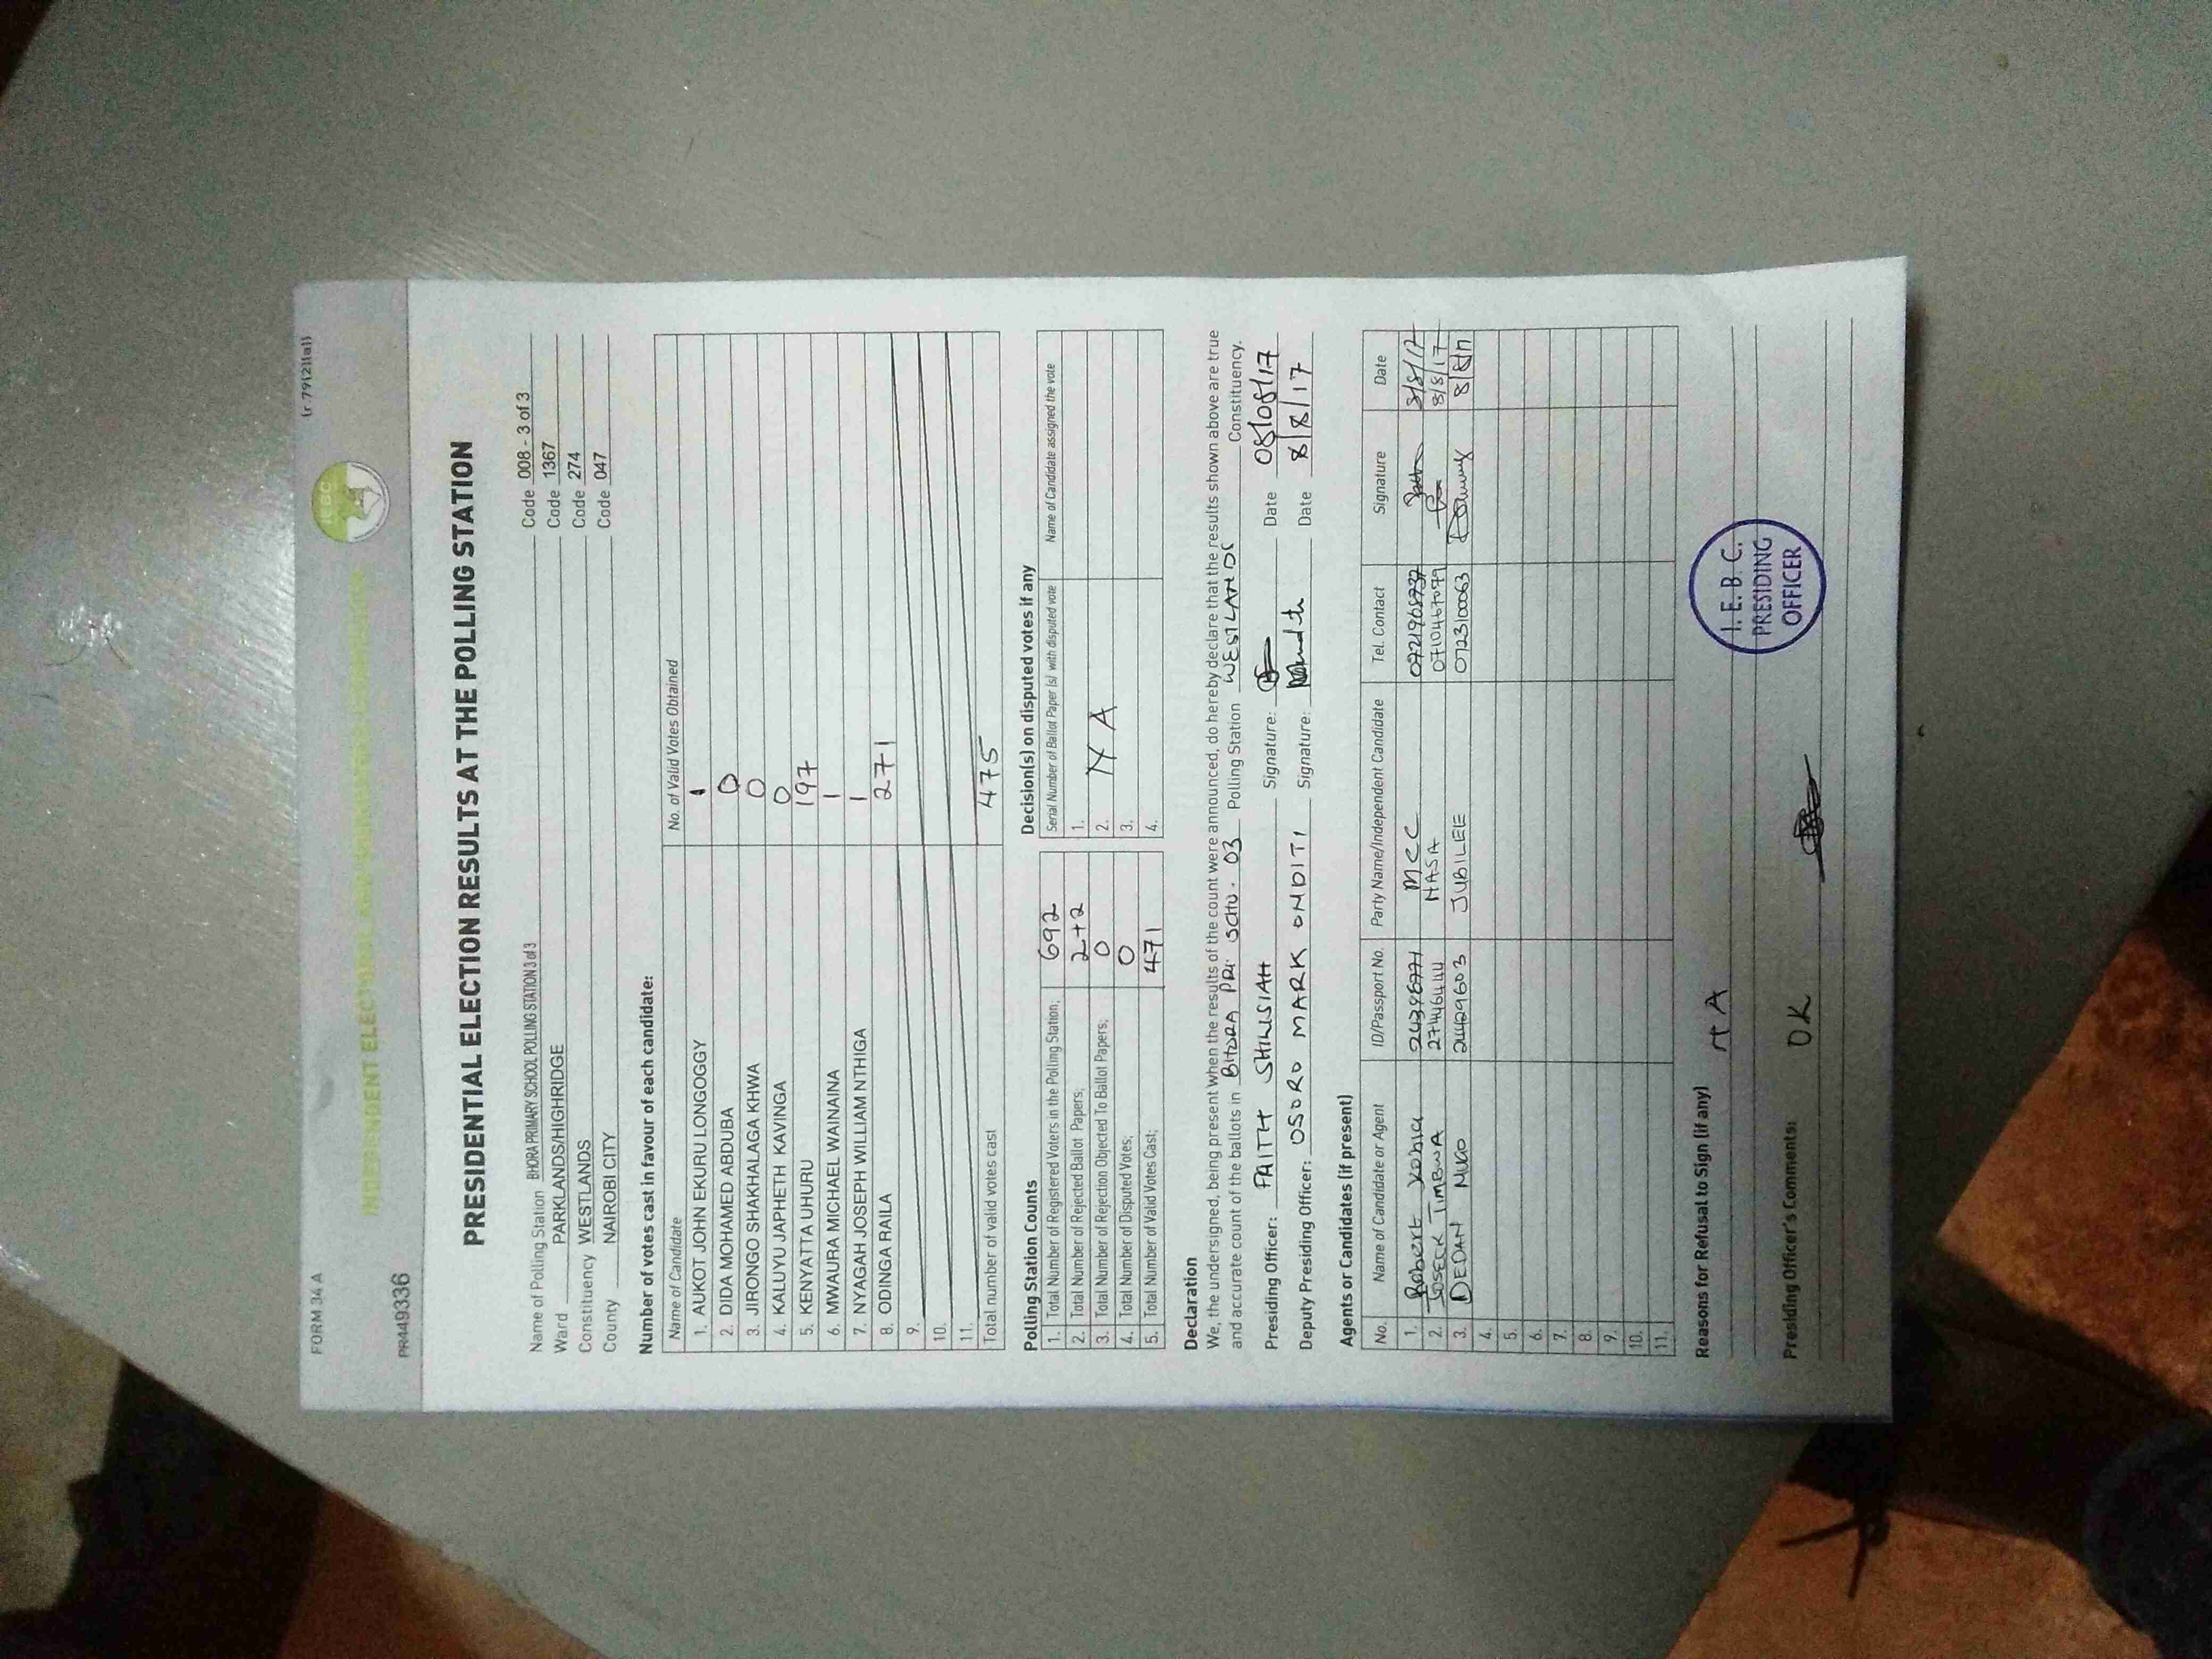 FORM 34 A (r.79(2)(a))
IEBC
INDEPENDENT ELECTORAL AND BOUNDARIES COMMISSION
PR449336
PRESIDENTIAL ELECTION RESULTS AT THE POLLING STATION
Name of Polling Station BHORA PRIMARY SCHOOL POLLING STATION 3 of 3 Code 008 - 3 of 3
Ward PARKLANDS/HIGHRIDGE Code 1367
Constituency WESTLANDS Code 274
County NAIROBI CITY Code 047
Number of votes cast in favour of each candidate:
Name of Candidate No. of Valid Votes Obtained
1. AUKOT JOHN EKURU LONGOGGY 1
2. DIDA MOHAMED ABDUBA 0
3. JIRONGO SHAKHALAGA KHWA 0
4. KALUYU JAPHETH KAVINGA 0
5. KENYATTA UHURU 197
6. MWAURA MICHAEL WAINAINA 1
7. NYAGAH JOSEPH WILLIAM NTHIGA 1
8. ODINGA RAILA 271
9.
10.
11.
Total number of valid votes cast 475
Polling Station Counts
1. Total Number of Registered Voters in the Polling Station; 692
2. Total Number of Rejected Ballot Papers; 2+2
3. Total Number of Rejection Objected To Ballot Papers; 0
4. Total Number of Disputed Votes; 0
5. Total Number of Valid Votes Cast; 471
Decision(s) on disputed votes if any
Serial Number of Ballot Paper (s) with disputed vote Name of Candidate assigned the vote
1.
2. N A
3.
4.
Declaration
We, the undersigned, being present when the results of the count were announced, do hereby declare that the results shown above are true
and accurate count of the ballots in BHORA PRI SCHO. 03 Polling Station WESTLANDS Constituency.
Presiding Officer: FAITH Signature: Date 08/08/17
Deputy Presiding Officer: OSORO MARK OMDITI Signature: Date 8/8/17
Agents or Candidates (if present)
No. Name of Candidate or Agent ID/Passport No. Party Name/Independent Candidate Tel. Contact Signature Date
1. Robert MCC 8/8/17
2. JOSECK TIMBWA 27446444 NASA 0710467079 8/8/17
3. DEDAN 24429603 JUBILEE 0723100063 8/8/17
4.
5.
6.
7.
8.
9.
10.
11.
Reasons for Refusal to Sign (if any)
N A
Presiding Officer's Comments: OK
I.E.B.C.
PRESIDING
OFFICER